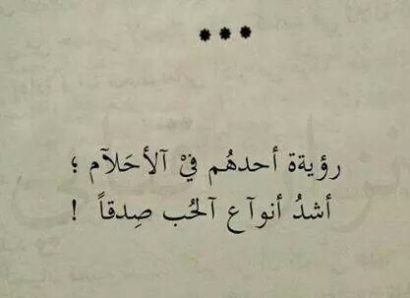 ***
رؤيةة أحدهُم فيْ آلأحَلآم ؛
أشدُ أنوآع آلحُب صِدقاً !